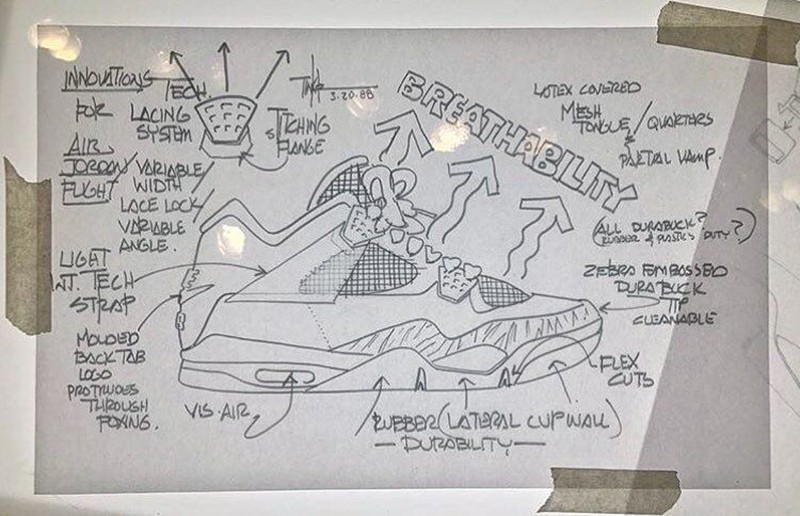 INNOVATIONS
FOR
AIR
JORDAN/
FLIGHT
TECH.
LACING
SYSTEM
VARIABLE
WIDTH
LACE LOCK
VARIABLE
ANGLE.
STITCHING
FLANGE
3.20.88
BREATHABILITY
LATEX COVERED
MESH
TONGUE/QUARTERS
&
PARTIAL VAMP.
(ALL DURABUCK?
RUBBER & PLASTICS DUTY?)
ZEBRA EMBOSSED
DURABUCK
TIP
CLEANABLE
LIGHT
INT. TECH
STRAP
MOLDED
BACK TAB
LOGO
PROTRUDES
THROUGH
FOXING.
VIS. AIR
RUBBER (LATERAL CUPWALL)
— DURABILITY —
FLEX
CUTS